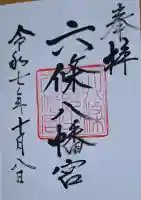 奉拝
六條八幡宮
令和七年十月八日